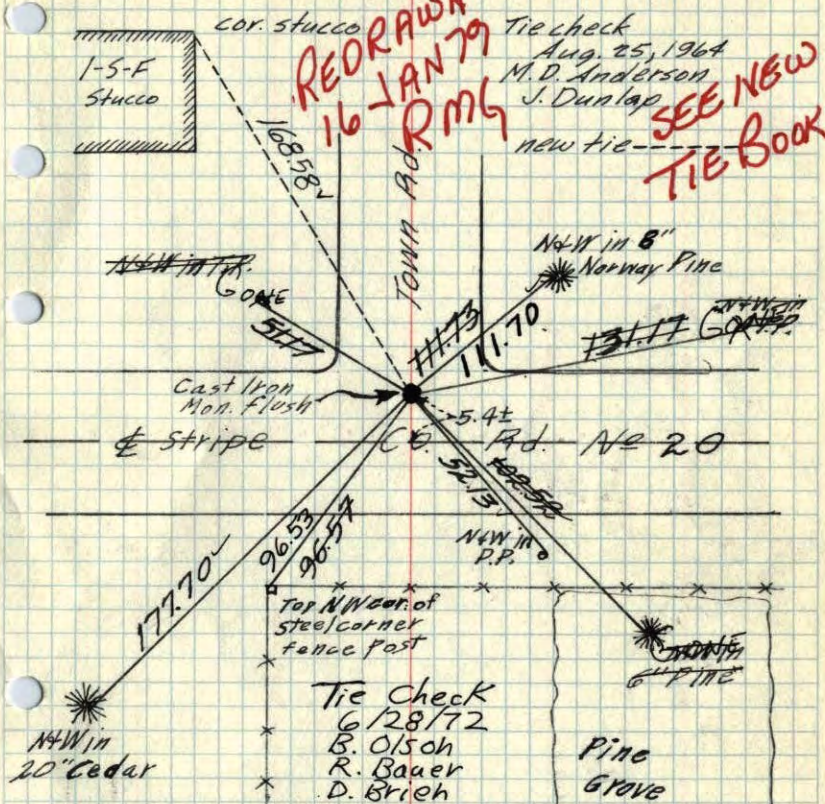 cor. stucco
REDRAWN
16 JAN 79
RMG
Tie check
Aug. 25, 1964
M.D. Anderson
J. Dunlap
new tie------
SEE NEW
TIE BOOK
1-S-F
Stucco
168.58✓
Town Rd.
N&W in 8"
Norway Pine
N&W in T.P.
GONE
51.17
111.73
111.70
131.17
GONE
N&W in
Cast Iron
Mon. flush
5.4±
℄ Stripe Co. Rd. No 20
52.13
102.52
N&W in
P.P.
96.53
96.57
177.70✓
Top NW cor. of
steel corner
fence post
GONE
6" Pine
Tie Check
6/28/72
B. Olson
R. Bauer
D. Brieh
N&W in
20" Cedar
Pine
Grove